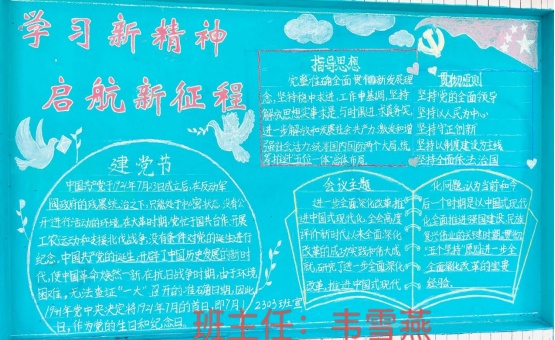 学习新精神
启航新征程
指导思想
完整准确全面贯彻新发展理
念，坚持稳中求进，工作中基调，坚持
解放思想实事求是，与时俱进，求真务实，
进一步解放和发展社会生产力，激发和增
强社会活力，统筹国内国际两个大局，统
筹推进五位一体，总体布局
贯彻原则
坚持党的全面领导
坚持以人民为中心
坚持守正创新
坚持以制度建设为主线
坚持全面依法治国
建党节
中国共产党于1921年7月23日成立后，在反动军
阀政府的残暴统治之下，只能处于秘密状态，没有公
开进行活动的环境。在大革命时期，党忙于国共合作、开展
工农运动和支援北伐战争，没有条件对党的诞生进行
纪念。中国共产党的诞生，开辟了中国历史发展的新时
代，使中国革命焕然一新。在抗日战争时期，由于环境
困难，无法查证“一大”召开的准确日期，因此
1941年党中央决定将1921年7月的首日，即7月1
日，作为党的生日和纪念日。
2303班宣
会议主题
进一步全面深化改革，推
进中国式现代化，全会高度
评价新时代以来全面深化
改革的成功实践和伟大成
就，研究了进一步全面深化
改革，推进中国式现代
化问题，认为当前和今
后一个时期是以中国式现代
化全面推进强国建设、民族
复兴伟业的关键时期，贯彻
进一步全
面深化改革的重要
经验。
班主任：韦雪燕